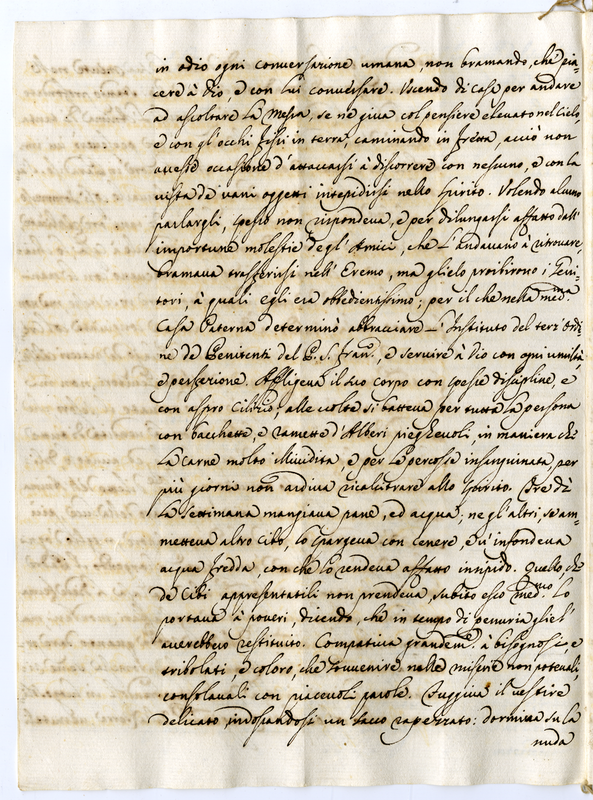 in odio ogni conversazione umana, non bramando, che pia=
cere à Dio, e con lui conversare. Uscendo di Casa per andare
ad ascoltare la Messa, se ne giva col pensiere elevato nel Cielo,
e con gl'occhi fissi in terra, caminando in fretta, acciò non
avesse occasione d'attaccarsi à discorrere con nessuno, e con la
vista de vani oggetti intepidirsi nello spirito. Volendo alcuno
parlargli, spesso non rispondeva, e per dilungarsi affatto dall'
importune molestie degl'Amici, che l'andavano à ritrovare,
bramava trasferirsi nell'Eremo, ma glielo proibirono i Geni=
tori, à quali egli era obbedientissimo; per il che nella med.ma
Casa Paterna determinò abbracciare l'Instituto del terz'Ordi=
ne de Penitenti del P. S. Fran.º, e servire à Dio con ogni umiltà,
e perfezione. Affligeva il suo corpo con spesse discipline, e
con aspro Cilizio; alle volte si batteva per tutta la persona
con bacchette, e ramette d'Alberi pieghevoli, in maniera che
la carne molto livida, e per le percosse insanguinata, per
più giorni non ardiva ricalcitrare allo spirito. Tre dì
la settimana mangiava pane, ed acqua; ne gl'altri, se am=
metteva altro cibo, lo spargeva con cenere, e vi infondeva
acqua fredda, con che lo rendeva affatto insipido. Quello, che
de Cibi appresentatili non prendeva, subito esso med.mo lo
portava à poveri, dicendo, che in tempo di penuria gliel'
averebbero restituito. Compativa grandem.e à bisognosi, e
tribolati, e coloro, che sovvenire nelle miserie non poteva,
consolavali con piacevoli parole. Fuggiva il vestire
delicato, indossandosi un sacco rapezzato: dormiva su la
nuda